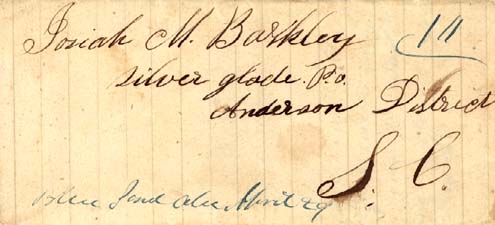 Josiah M. Barkley
14
silver glade. P.o.
Anderson District
S. C.
April 29